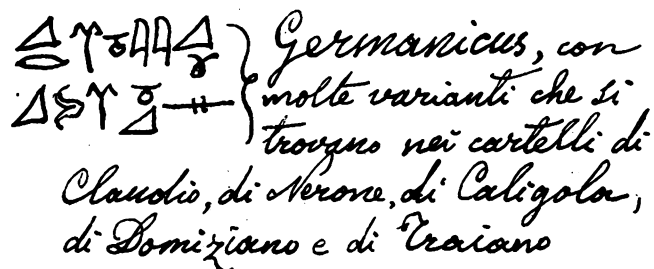 Germanicus, con
molte varianti che si
trovano nei cartelli di
Claudio, di Nerone, di Caligola,
di Domiziano e di Traiano